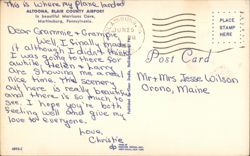 This is where my plane landed
ALTOONA, BLAIR COUNTY AIRPORT
in beautiful Morrisons Cove,
Martinsburg, Pennsylvania.
Dear Grammie & Grampie,
Well I finally made
it although I didn't think
I was going to there for
awhile. Helen & Larry
are showing me a real
nice time. The scenery
out here is really beautiful
and there is so much to
see. I hope you're
feeling well and give my
love to everyone.
Love,
Christie
Post Card
PLACE
STAMP
HERE
Mr & Mrs Jesse Wilson
Orono, Maine